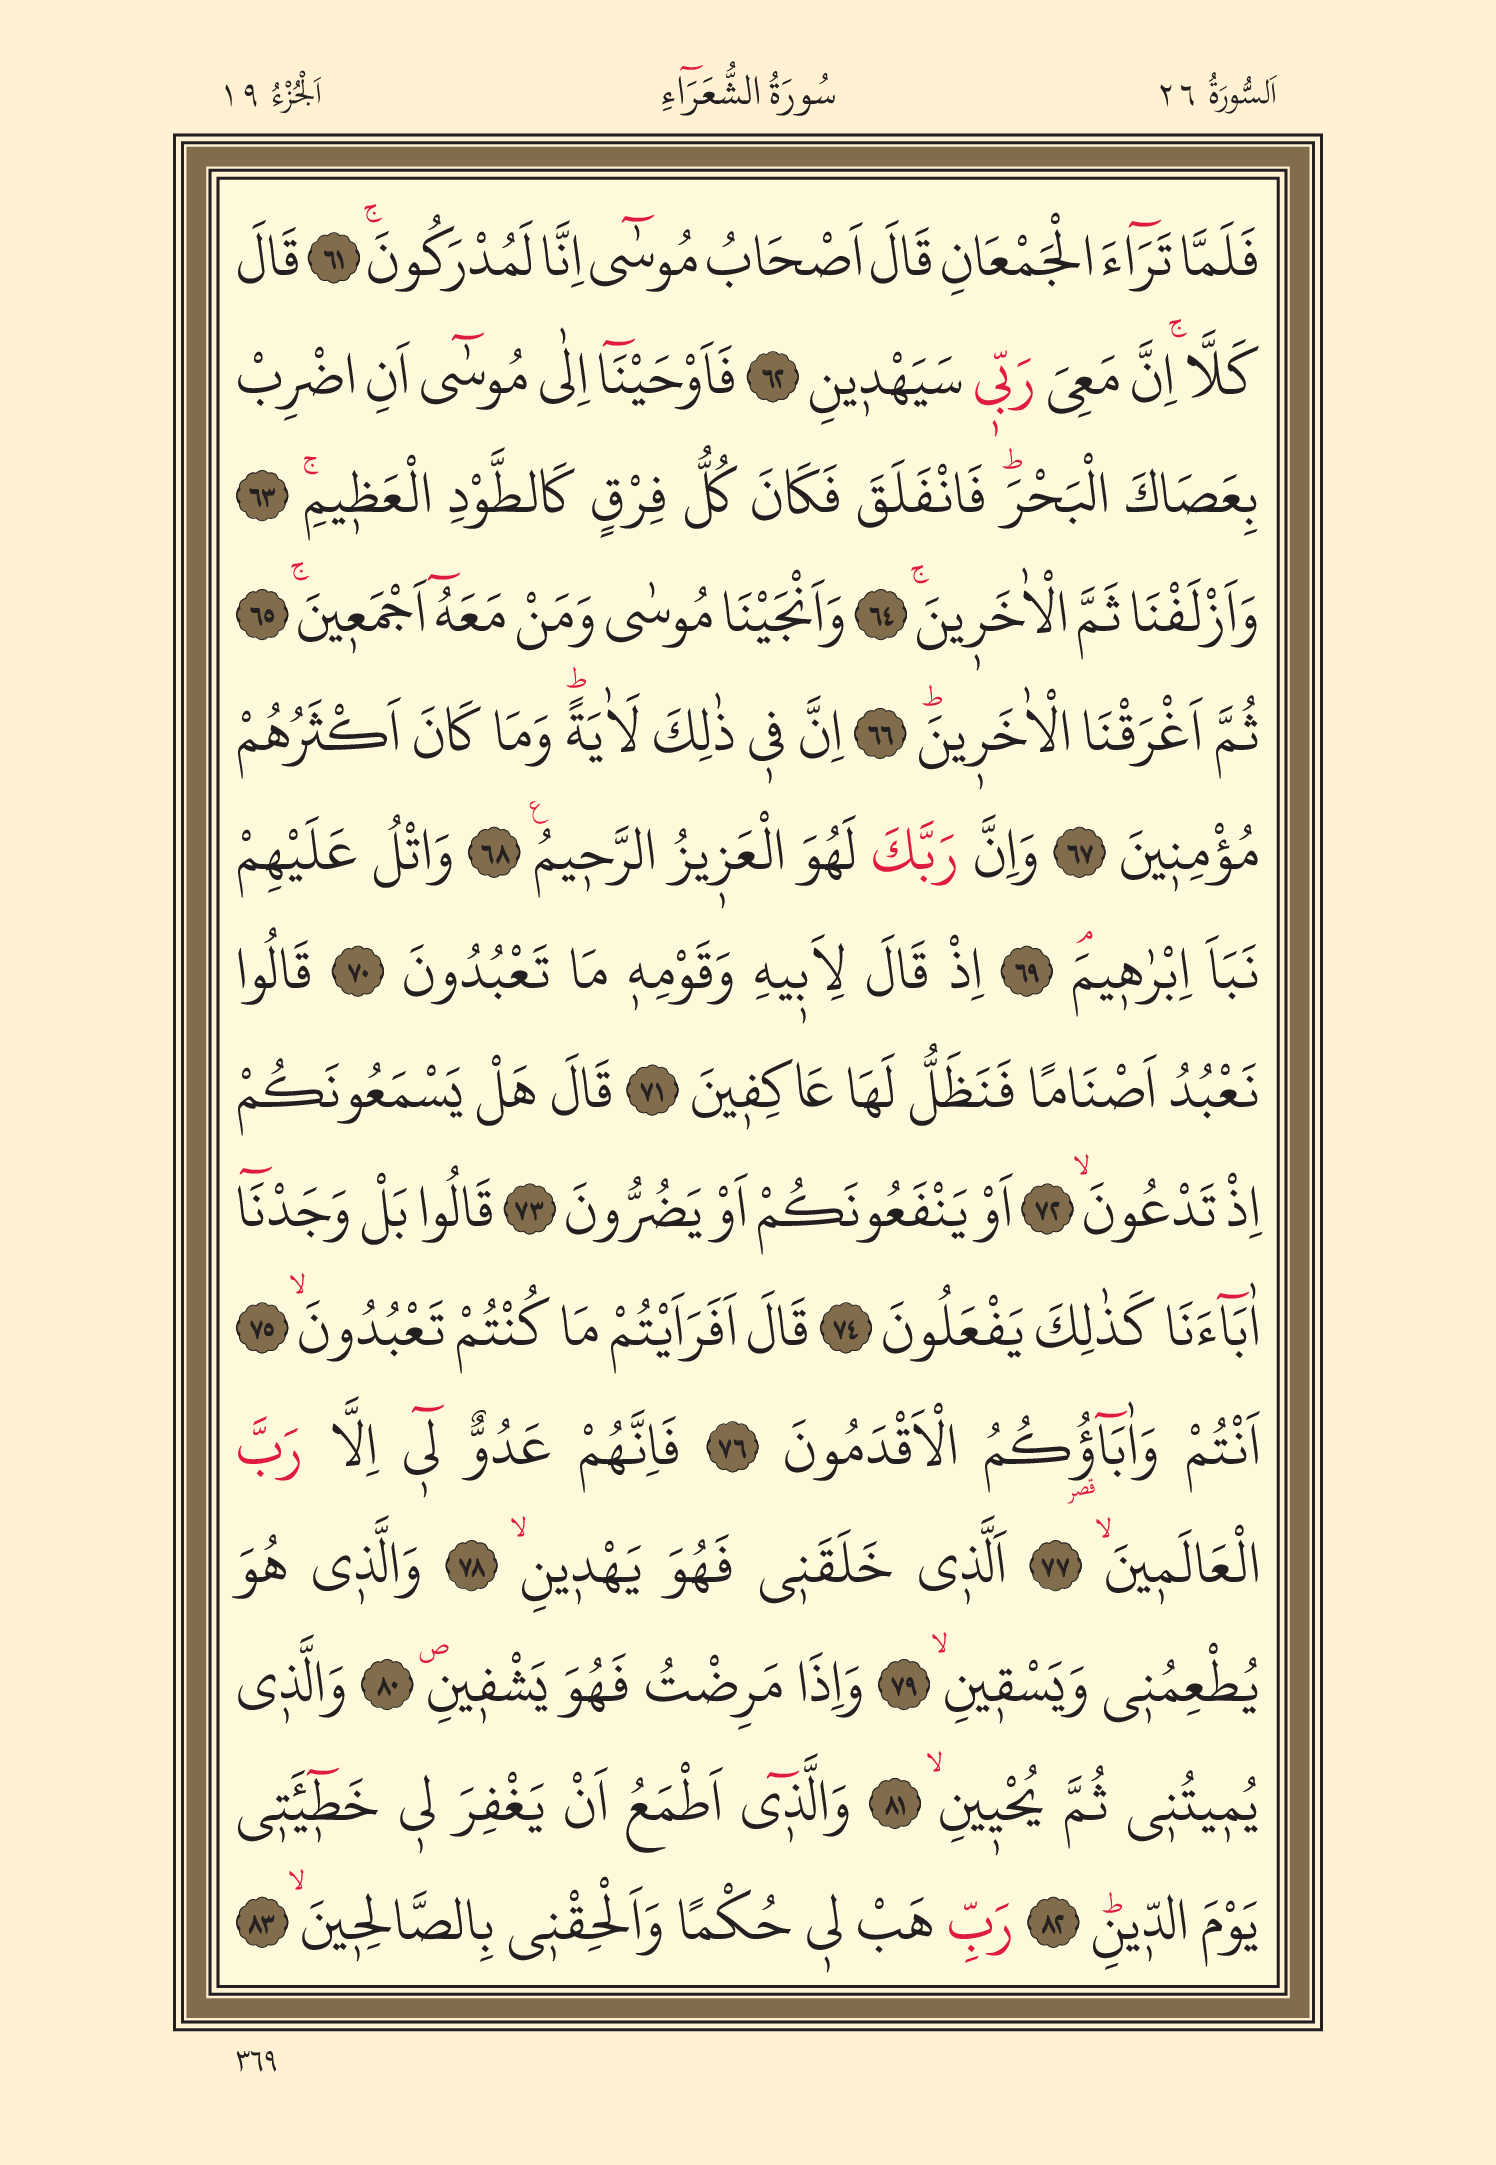 اَلسُّورَةُ ٢٦ سُورَةُ الشُّعَرَٓاءِ اَلْجُزْءُ ١٩
فَلَمَّا تَرَٓاءَ الْجَمْعَانِ قَالَ اَصْحَابُ مُوسٰٓى اِنَّا لَمُدْرَكُونَۚ ٦١ قَالَ
كَلَّاۚ اِنَّ مَعِىَ رَبّٖى سَيَهْدٖينِ ٦٢ فَاَوْحَيْنَٓا اِلٰى مُوسٰٓى اَنِ اضْرِبْ
بِعَصَاكَ الْبَحْرَؕ فَانْفَلَقَ فَكَانَ كُلُّ فِرْقٍ كَالطَّوْدِ الْعَظٖيمِۚ ٦٣
وَاَزْلَفْنَا ثَمَّ الْاٰخَرٖينَۚ ٦٤ وَاَنْجَيْنَا مُوسٰى وَمَنْ مَعَهُٓ اَجْمَعٖينَۚ ٦٥
ثُمَّ اَغْرَقْنَا الْاٰخَرٖينَؕ ٦٦ اِنَّ فٖى ذٰلِكَ لَاٰيَةًؕ وَمَا كَانَ اَكْثَرُهُمْ
مُؤْمِنٖينَ ٦٧ وَاِنَّ رَبَّكَ لَهُوَ الْعَزٖيزُ الرَّحٖيمُ ع ٦٨ وَاتْلُ عَلَيْهِمْ
نَبَاَ اِبْرٰهٖيمَۘ ٦٩ اِذْ قَالَ لِاَبٖيهِ وَقَوْمِهٖ مَا تَعْبُدُونَ ٧٠ قَالُوا
نَعْبُدُ اَصْنَامًا فَنَظَلُّ لَهَا عَاكِفٖينَ ٧١ قَالَ هَلْ يَسْمَعُونَكُمْ
اِذْ تَدْعُونَۙ ٧٢ اَوْ يَنْفَعُونَكُمْ اَوْ يَضُرُّونَ ٧٣ قَالُوا بَلْ وَجَدْنَٓا
اٰبَٓاءَنَا كَذٰلِكَ يَفْعَلُونَ ٧٤ قَالَ اَفَرَاَيْتُمْ مَا كُنْتُمْ تَعْبُدُونَۙ ٧٥
اَنْتُمْ وَاٰبَٓاؤُكُمُ الْاَقْدَمُونَ ٧٦ فَاِنَّهُمْ عَدُوٌّ لٖٓى اِلَّا رَبَّ
قصر
الْعَالَمٖينَۙ ٧٧ اَلَّذٖى خَلَقَنٖى فَهُوَ يَهْدٖينِۙ ٧٨ وَالَّذٖى هُوَ
يُطْعِمُنٖى وَيَسْقٖينِۙ ٧٩ وَاِذَا مَرِضْتُ فَهُوَ يَشْفٖينِ ص ٨٠ وَالَّذٖى
يُمٖيتُنٖى ثُمَّ يُحْيٖينِۙ ٨١ وَالَّذٖٓى اَطْمَعُ اَنْ يَغْفِرَ لٖى خَطٖٓيـَٔتٖى
يَوْمَ الدّٖينِؕ ٨٢ رَبِّ هَبْ لٖى حُكْمًا وَاَلْحِقْنٖى بِالصَّالِحٖينَۙ ٨٣
٣٦٩